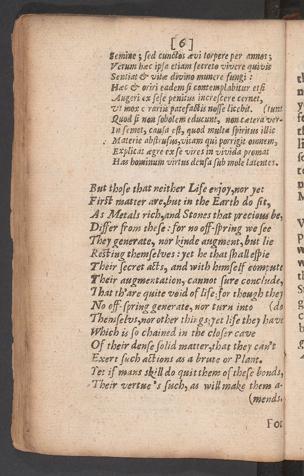 [6]
Semine; sed cunctos ævi torpere per annos;
Verum hæc ipsa etiam secreto vivere quivis
Sentiat & vitæ divino munere fungi:
Hæc & oriri eadem si contemplabitur etsi
Augeri ex sese penitus increscere cernet,
Vt mox e variis patefactis nosse licebit. (tunt
Quod si non sobolem educunt, non cætera ver-
In semet, causa est, quod multa spiritus illic
Materie abstrusus, vitam qui porrigit omnem,
Explicat ægre ex se vires in vivida promat
Has hominum virtus densa sub mole latentes.
But those that neither Life enjoy, nor yet
First matter are, but in the Earth do sit,
As Metals rich, and Stones that precious be,
Differ from these: for no off-spring we see
They generate, nor kinde augment, but lie
Resting themselves: yet he that shall espie
Their secret acts, and with himself compute
Their augmentation, cannot sure conclude,
That th'are quite void of life: for though they
No off-spring generate, nor turn into (do
Themselvs, nor other things; yet life they have
Which is so chained in the closer cave
Of their dense solid matter, that they can't
Exert such actions as a brute or Plant.
Yet if mans skill do quit them of these bonds,
Their vertue's such, as will make them a-
(mends.
For